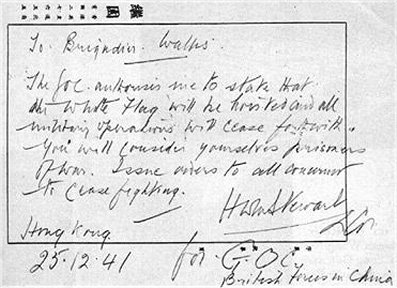 To Brigadier. Wallis.
The GOC. authorises me to state that
the White Flag will be hoisted and all
military operations will cease forthwith.
You will consider yourselves prisoners
of war. Issue orders to all concerned
to cease fighting.
Hong Kong
25.12.41
for. GOC
British Forces in China